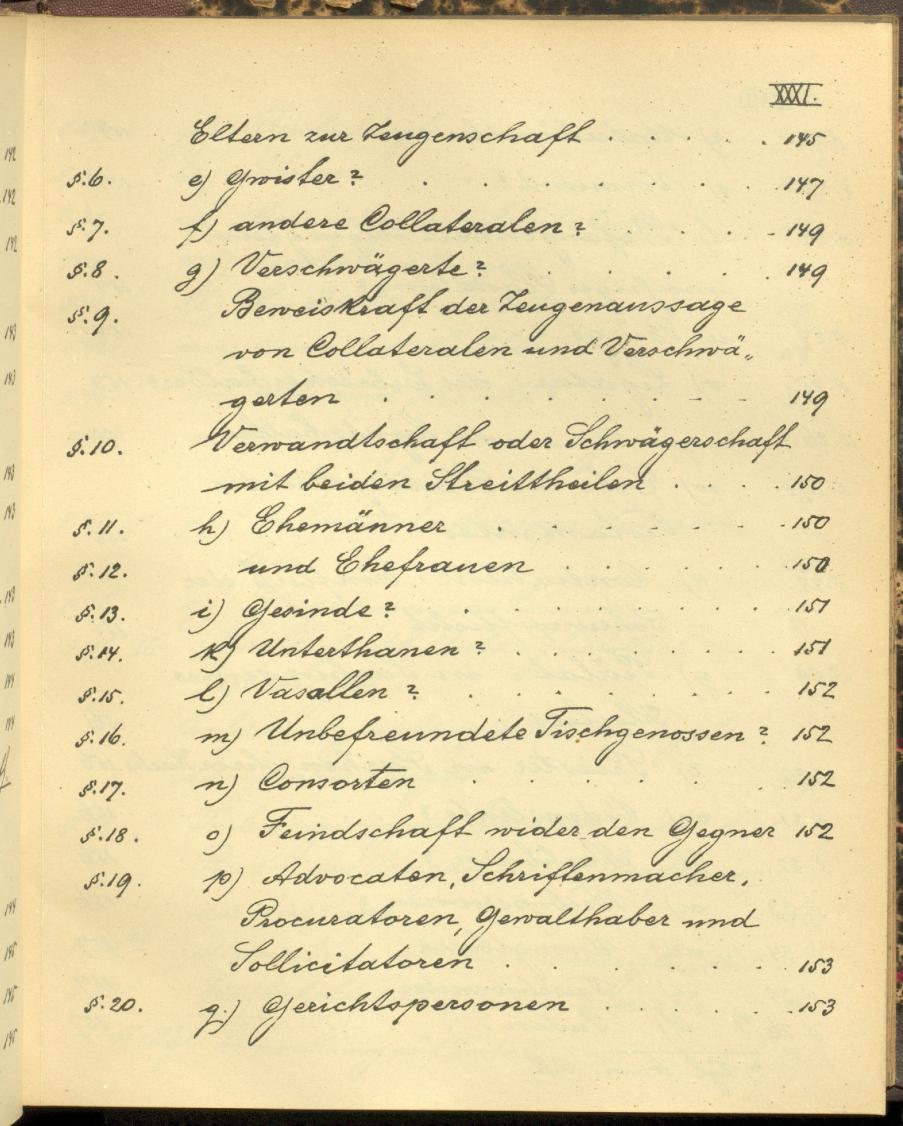 XXXI.
Eltern zur Zeugenschaft . . . . . 145
§.6. e) Gwister? . . . . . . . 147
§.7. f) andere Collateralen? . . . . 149
§.8. g) Verschwägerte? . . . . . . 149
§.9. Beweiskraft der Zeugenaussage
von Collateralen und Verschwä„
gerten . . . . . . . . 149
§.10. Verwandtschaft oder Schwägerschaft
mit beiden Streittheilen . . . . 150
§.11. h) Ehemänner . . . . . . . 150
§.12. und Ehefrauen . . . . . . 150
§.13. i) Gesinde? . . . . . . . 151
§.14. k) Unterthanen? . . . . . . 151
§.15. l) Vasallen? . . . . . . . 152
§.16. m) Unbefreundete Tischgenossen? 152
§.17. n) Consorten . . . . . . . 152
§.18. o) Feindschaft wider den Gegner 152
§.19. p) Advocaten, Schriftenmacher,
Procuratoren, Gewalthaber und
Sollicitatoren . . . . . . 153
§.20. q.) Gerichtspersonen . . . . . 153
142
142
142
143
143
143
143
143
143
144
144
144
145
145
145